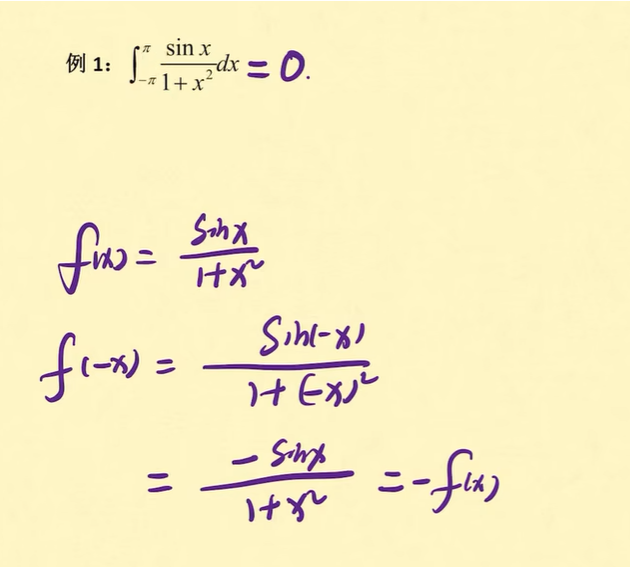 例 1: ∫_{-π}^{π} \frac{\sin x}{1+x^2} dx = 0.
f(x) = \frac{\sin x}{1+x^2}
f(-x) = \frac{\sin(-x)}{1+(-x)^2}
= \frac{-\sin x}{1+x^2} = -f(x)